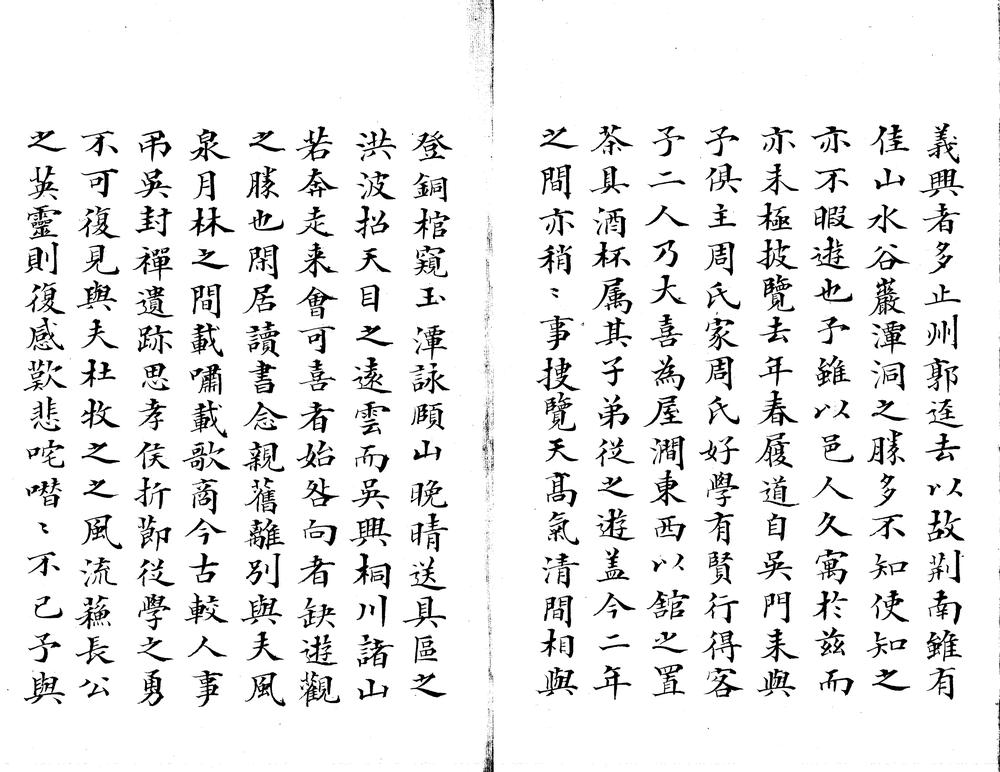 義興者多止州郭迳去以故荆南雖有
佳山水谷巖潭洞之勝多不知使知之
亦不暇遊也予雖以邑人久寓於兹而
亦未極披覽去年春履道自吳門来與
予俱主周氏家周氏好學有賢行得客
子二人乃大喜為屋澗東西以舘之置
茶具酒杯属其子弟従之遊盖今二年
之間亦稍〻事搜覽天髙氣清間相與
登銅棺窺玉潭詠頤山晚晴送具區之
洪波招天目之遠雲而吳興桐川諸山
若奔走来會可喜者始咎向者缺遊觀
之勝也閑居讀書念親舊離別與夫風
泉月林之間載嘯載歌商今古較人事
弔吳封禪遺跡思孝侯折節従學之勇
不可復見與夫杜牧之之風流蘓長公
之英靈則復感歎悲咤喈〻不已予與